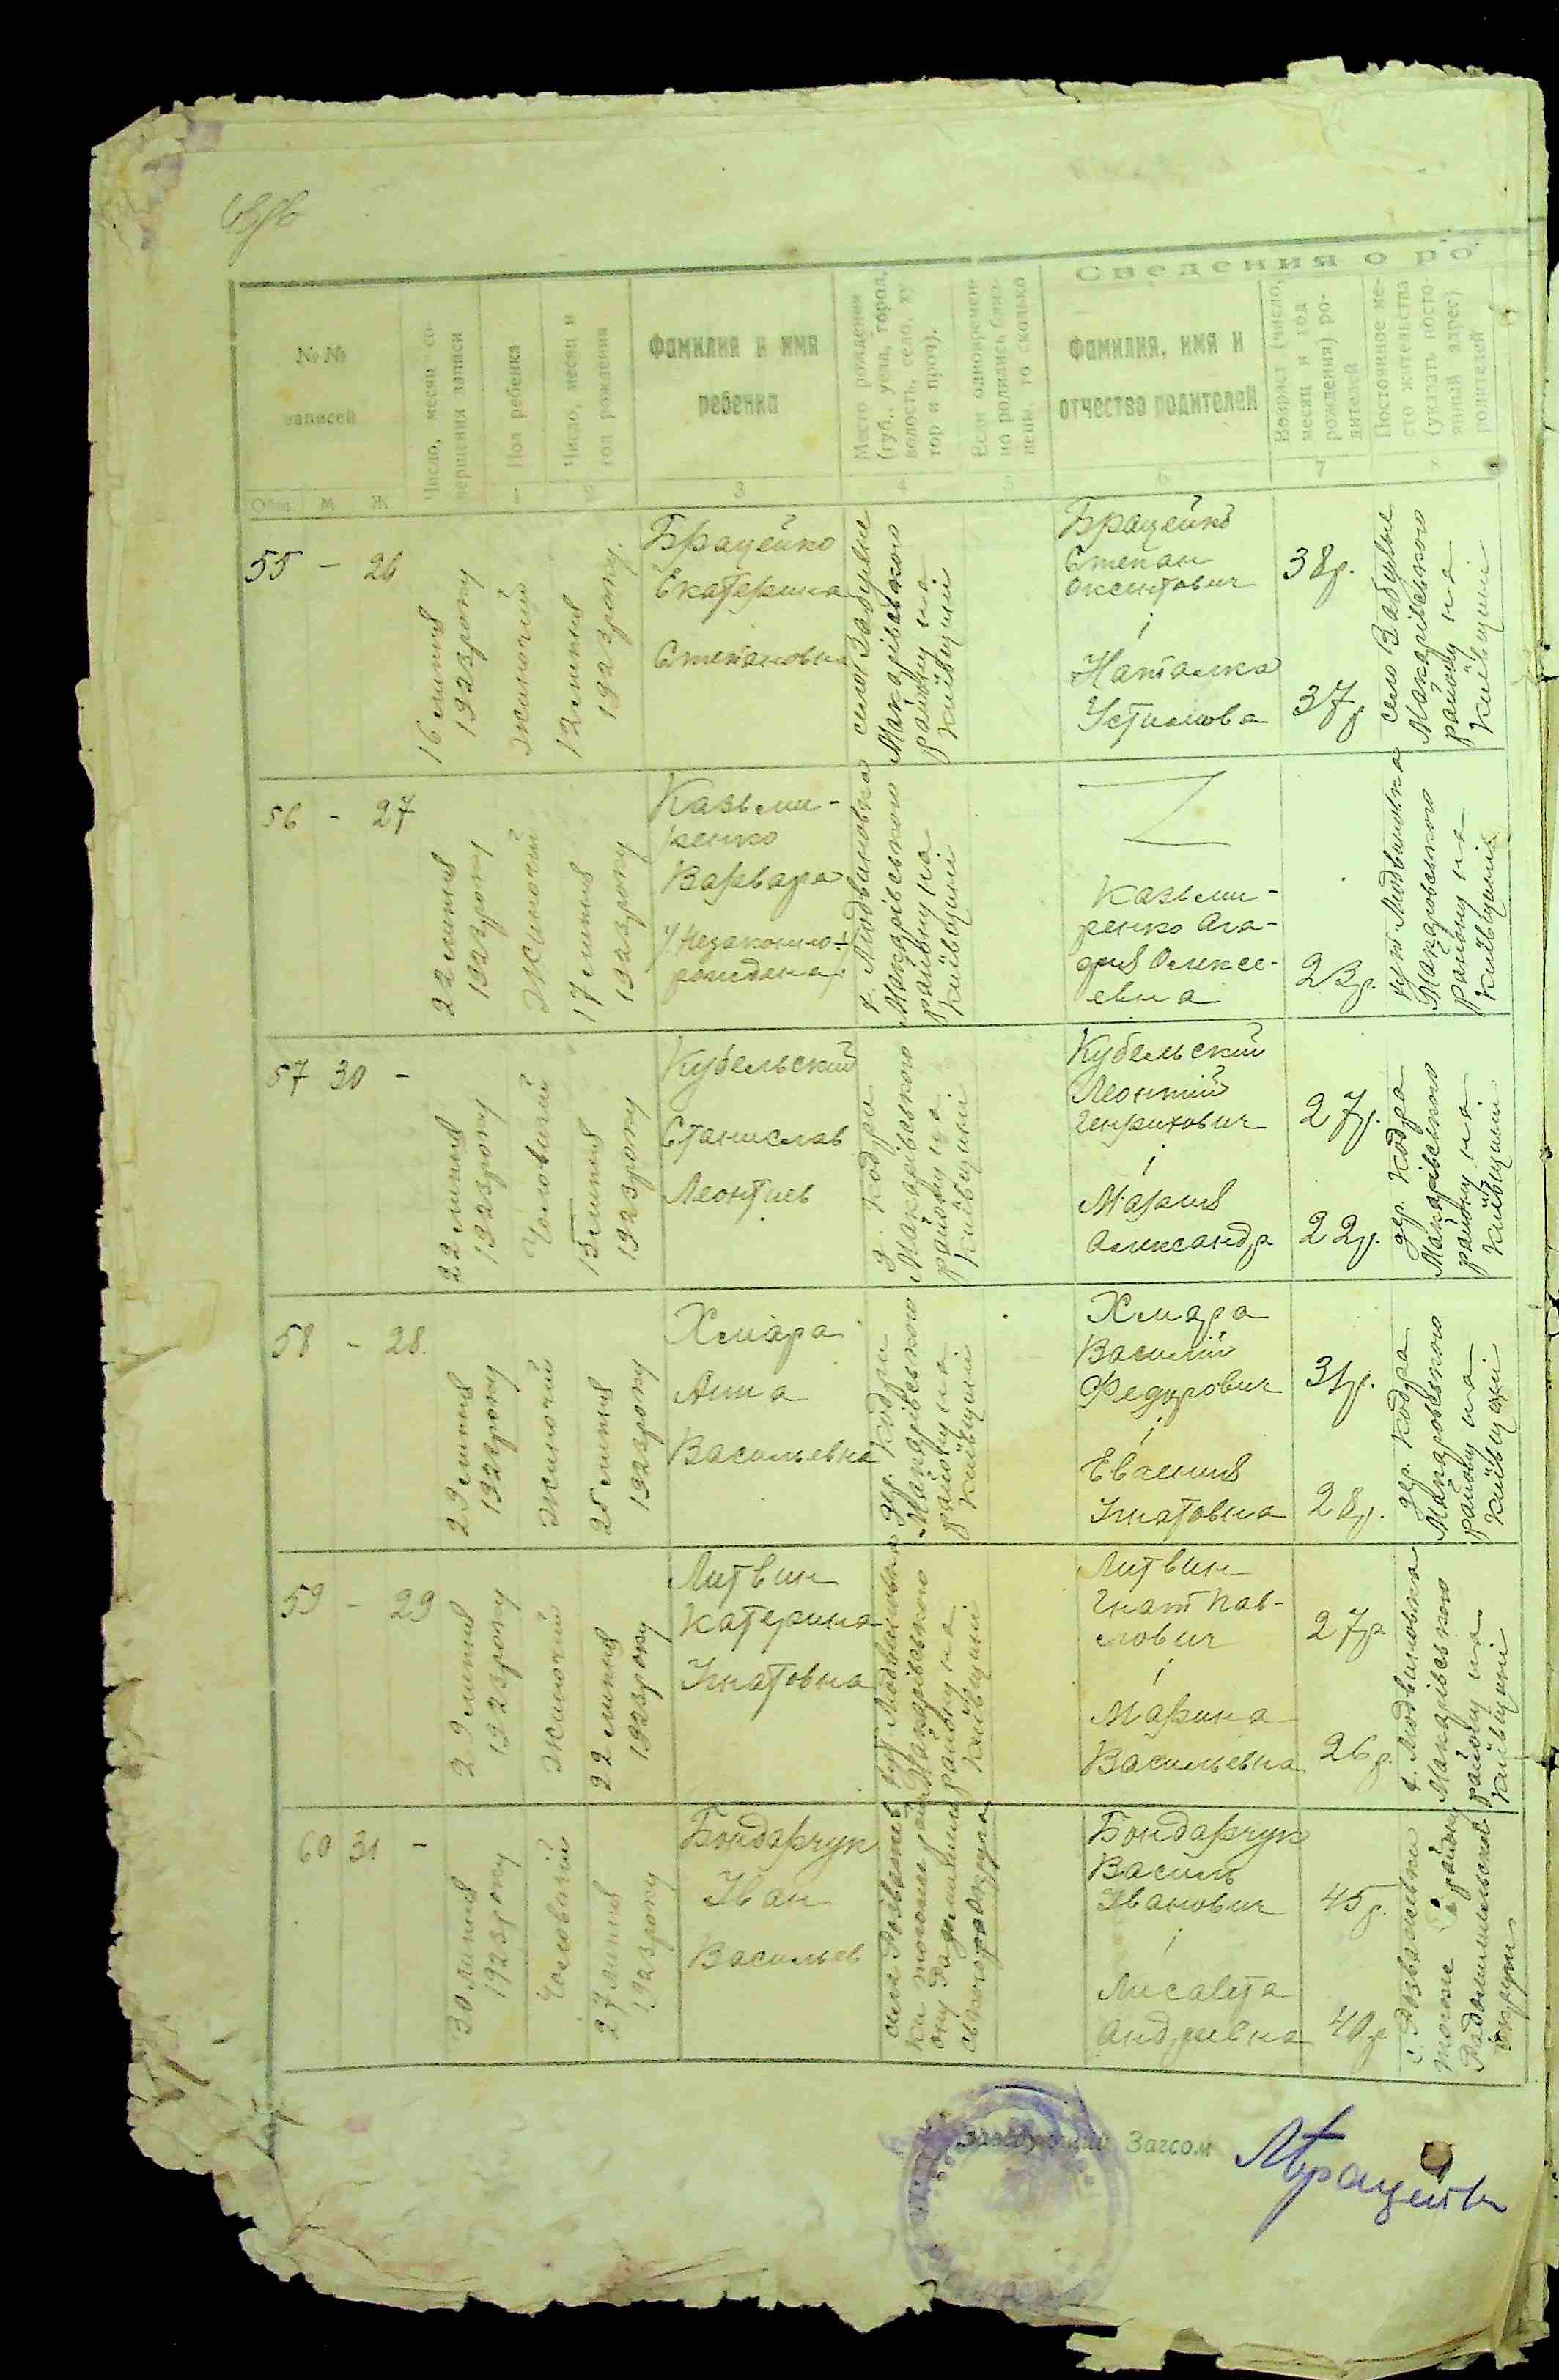 Сведения о ро
№№
записей
Общ. М Ж
Число, месяц со-
вершения записи
Пол ребенка
1
Число, месяц и
год рождения
2
Фамилия и имя
ребенка
3
Место рождения
(губ., уезд, город,
волость, село, ху
тор и проч).
4
Если одновремен
но родились близ-
нецы, то сколько
5
Фамилия, имя и
отчество родителей
6
Возраст (число,
месяц и год
рождения) ро-
дителей
7
Постоянное ме-
сто жительства
(указать посто-
янный адрес)
родителей
55 - 26
16 липня
1923 року
Жиночий
12 липня
1923 року.
Брацейко
Екатерина
Степановна
село
Макарівського
району на
Київщині
Брацейко
Степан
Оксентович
і
Наталка
Устимова
38р.
37р
село
Макарівського
району на
Київщині
56 - 27
22 липня
1923 року
Жиночий
17 липня
1923 року
Казьми-
ренко
Варвара
/Незаконно-
рожденна/
х. Людвиновка
Макарівського
району на
Київщині
Казьми-
ренко Ага-
фия Олексе-
евна
23р.
хут. Людвиновка
Макаровського
району на
Київщині
57 30 -
22 липня
1923 року
Чоловичий
15 липня
1923 року
Кубельский
Станислав
Леонтиев
д. Кодри
Макарівського
району на
Київщині
Кубельский
Леонтий
Генрихович
і
Мария
Александр
27р.
22р.
дер. Кодра
Макарівського
району на
Київщині
58 - 28.
29 липня
1923 року
Жиночий
25 липня
1923 року
Хмара
Анна
Васильевна
дер. Кодри
Макарівського
району на
Київщині
Хмара
Василий
Федорович
і
Евгения
Игнатовна
31р.
28р.
дер. Кодра
Макаровського
району на
Київщині
59 - 29
29 липня
1923 року
Жиночий
22 липня
1923 року
Литвин
Катерина
Игнатовна
хут. Людвиновка
Макарівського
району на
Київщині
Литвин
Гнат Пав-
лович
і
Марина
Васильевна
27р
26р.
х. Людвиновка
Макарівського
району на
Київщині
60 31 -
30 липня
1923 року
Чоловичий
27 липня
1923 року
Бондарчук
Иван
Васильев
Бондарчук
Василь
Иванович
і
Лисавета
Андреевна
45р.
40р
с. Розважки
того же району
Радомишльской
округи
Заведующий Загсом